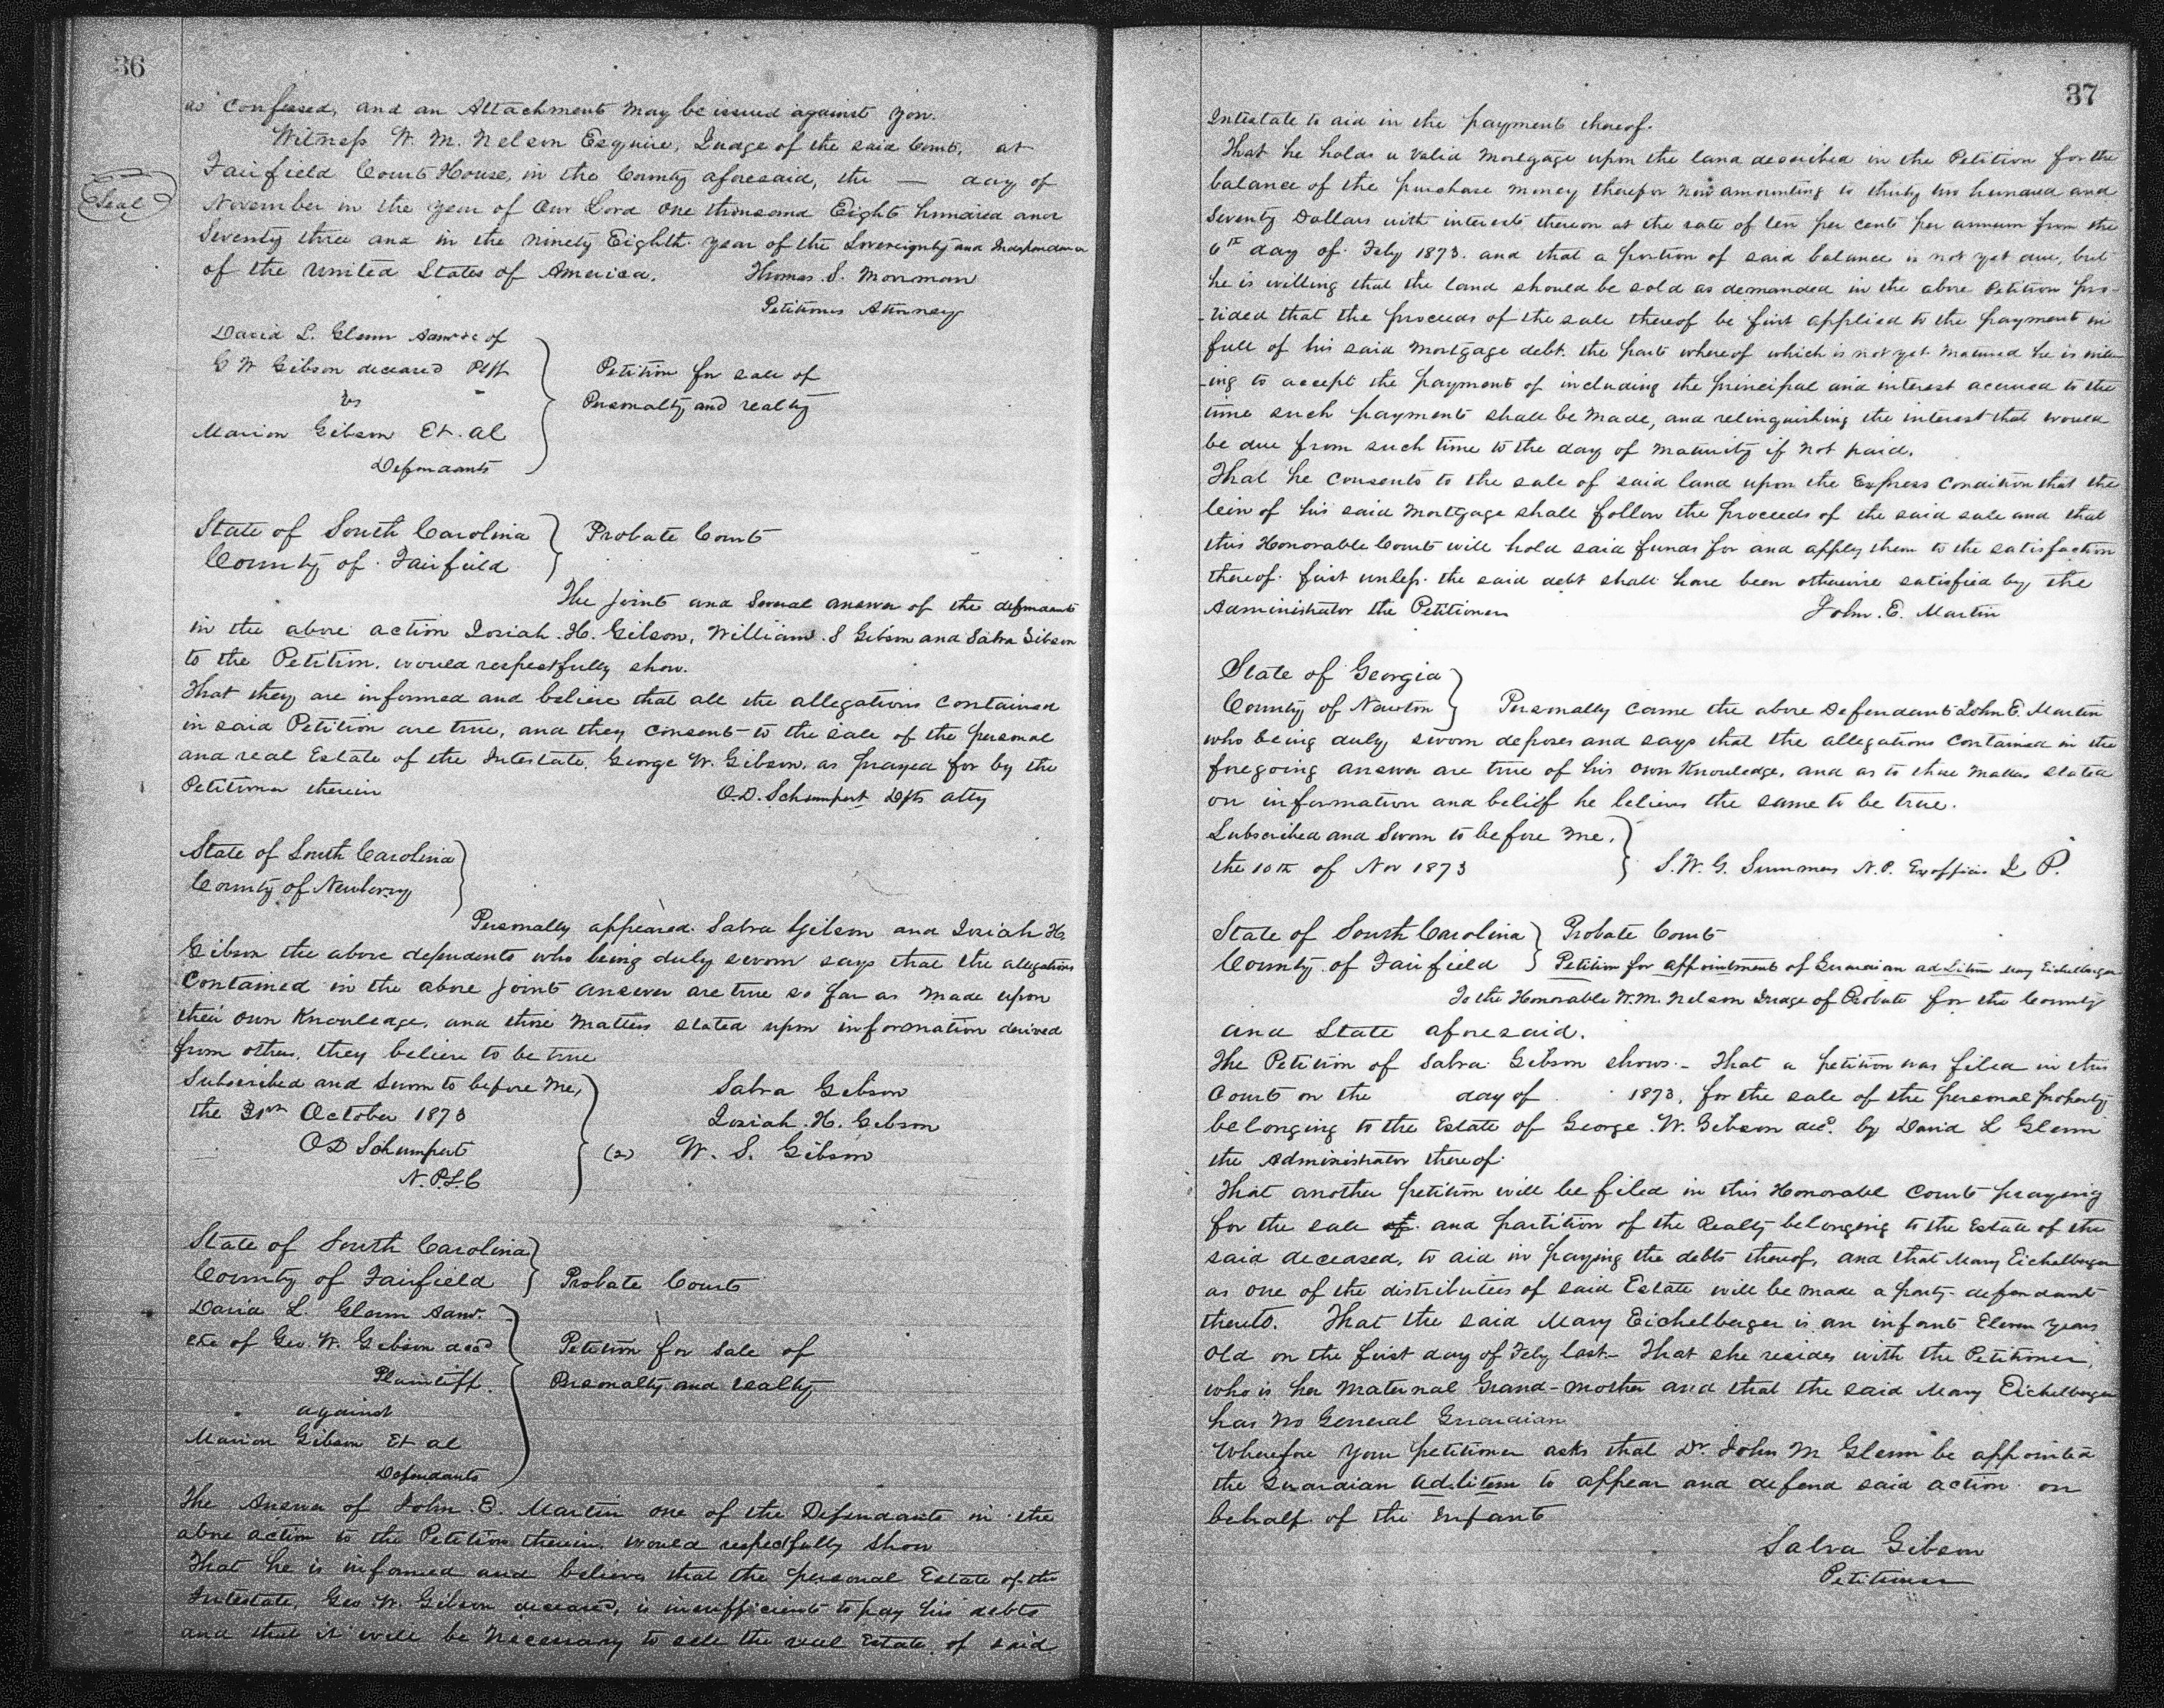 36
as confessed, and an Attachment may be issued against you.
Witness W. M. Nelson Esquire, Judge of the said Court, at
Fairfield Court House, in the County aforesaid, the — day of
Seal
November in the year of Our Lord one thousand Eight hundred and
Seventy three and in the ninety Eighth year of the Sovereignty and Independence
of the United States of America. Thomas. S. Moorman
Petitioners Attorney
David L. Glenn Admr &c of
G W Gibson deceased Plff
vs
Marion Gibson Et. al
Defendants
Petition for sale of
Personalty and realty
State of South Carolina
County of Fairfield
Probate Court
The joint and Several answer of the defendants
in the above action Josiah. H. Gibson, William. S Gibson and Sabra Gibson
to the Petition. would respectfully show.
That they are informed and believe that all the allegations contained
in said Petition are true, and they consent to the sale of the personal
and real Estate of the Intestate, George W. Gibson. as prayed for by the
Petitioner therein O.D. Schumpert Dfts atty
State of South Carolina
County of Newberry
Personally appeared Sabra Gibson and Josiah H.
Gibson the above defendants who being duly sworn says that the allegations
Contained in the above joint answer are true so far as made upon
their own Knowledge, and those matters stated upon information derived
from others, they believe to be true
Subscribed and Sworn to before me,
the 31st October 1873
O D Schumpert
N.P.S.C
Sabra Gibson
Josiah. H. Gibson
(2) W. S. Gibson
State of South Carolina
County of Fairfield
Probate Court
David L. Glenn Admr.
etc of Geo. W. Gibson decd
Plaintiff.
against
Marion Gibson Et al
Defendants
Petition for Sale of
Personalty and realty
The Answer of John. E. Martin one of the Defendants in the
above action to the Petition therein, would respectfully show
That he is informed and believes that the personal Estate of the
Intestate, Geo. W. Gibson deceased, is insufficient to pay his debts
and that it will be necessary to sell the real Estate of said
37
Intestate to aid in the payment thereof.
That he holds a valid mortgage upon the land described in the Petition for the
balance of the purchase money therefor now amounting to thirty two hundred and
Seventy Dollars with interest thereon at the rate of ten per cent per annum from the
6th day of Feby 1873. and that a portion of said balance is not yet due, but
he is willing that the land should be sold as demanded in the above Petition pro-
-vided that the proceeds of the sale thereof be first applied to the payment in
full of his said mortgage debt. the part whereof which is not yet matured he is will-
-ing to accept the payment of including the principal and interest accrued to the
time such payment shall be made, and relinquishing the interest that would
be due from such time to the day of maturity if not paid.
That he consents to the sale of said land upon the Express Condition that the
lein of his said mortgage shall follow the proceeds of the said sale and that
this Honorable Court will hold said funds for and apply them to the satisfaction
thereof first unless the said debt shall have been otherwise satisfied by the
Administrator the Petitioner John. E. Martin
State of Georgia
County of Newton
Personally came the above Defendant John E. Martin
who being duly sworn deposes and says that the allegations contained in the
foregoing answer are true of his own Knowledge, and as to those matters stated
on information and belief he believes the same to be true.
Subscribed and Sworn to before me,
the 10th of Nov 1873
S. W. G. Summers N.P. Ex officio J. P.
State of South Carolina
County of Fairfield
Probate Court
Petition for appointment of Guardian ad Litem Mary Eichelberger
To the Honorable W. M. Nelson Judge of Probate for the County
and State aforesaid.
The Petition of Sabra Gibson shows.- That a petition was filed in this
Court on the day of 1873, for the sale of the personal property
belonging to the Estate of George. W. Gibson decd. by David L Glenn
the Administrator thereof.
That another petition will be filed in this Honorable Court praying
for the sale of and partition of the Realty belonging to the Estate of the
said deceased, to aid in paying the debts thereof, and that Mary Eichelberger
as one of the distributees of said Estate will be made a party defendant
thereto. That the said Mary Eichelberger is an infant Eleven years
old on the first day of Feby last.- That she resides with the Petitioner,
who is her maternal Grand-mother and that the said Mary Eichelberger
has no General Guardian
Wherefore your petitioner asks that Dr. John M Glenn be appointed
the Guardian ad. litem to appear and defend said action on
behalf of the Infant
Sabra Gibson
Petitioner